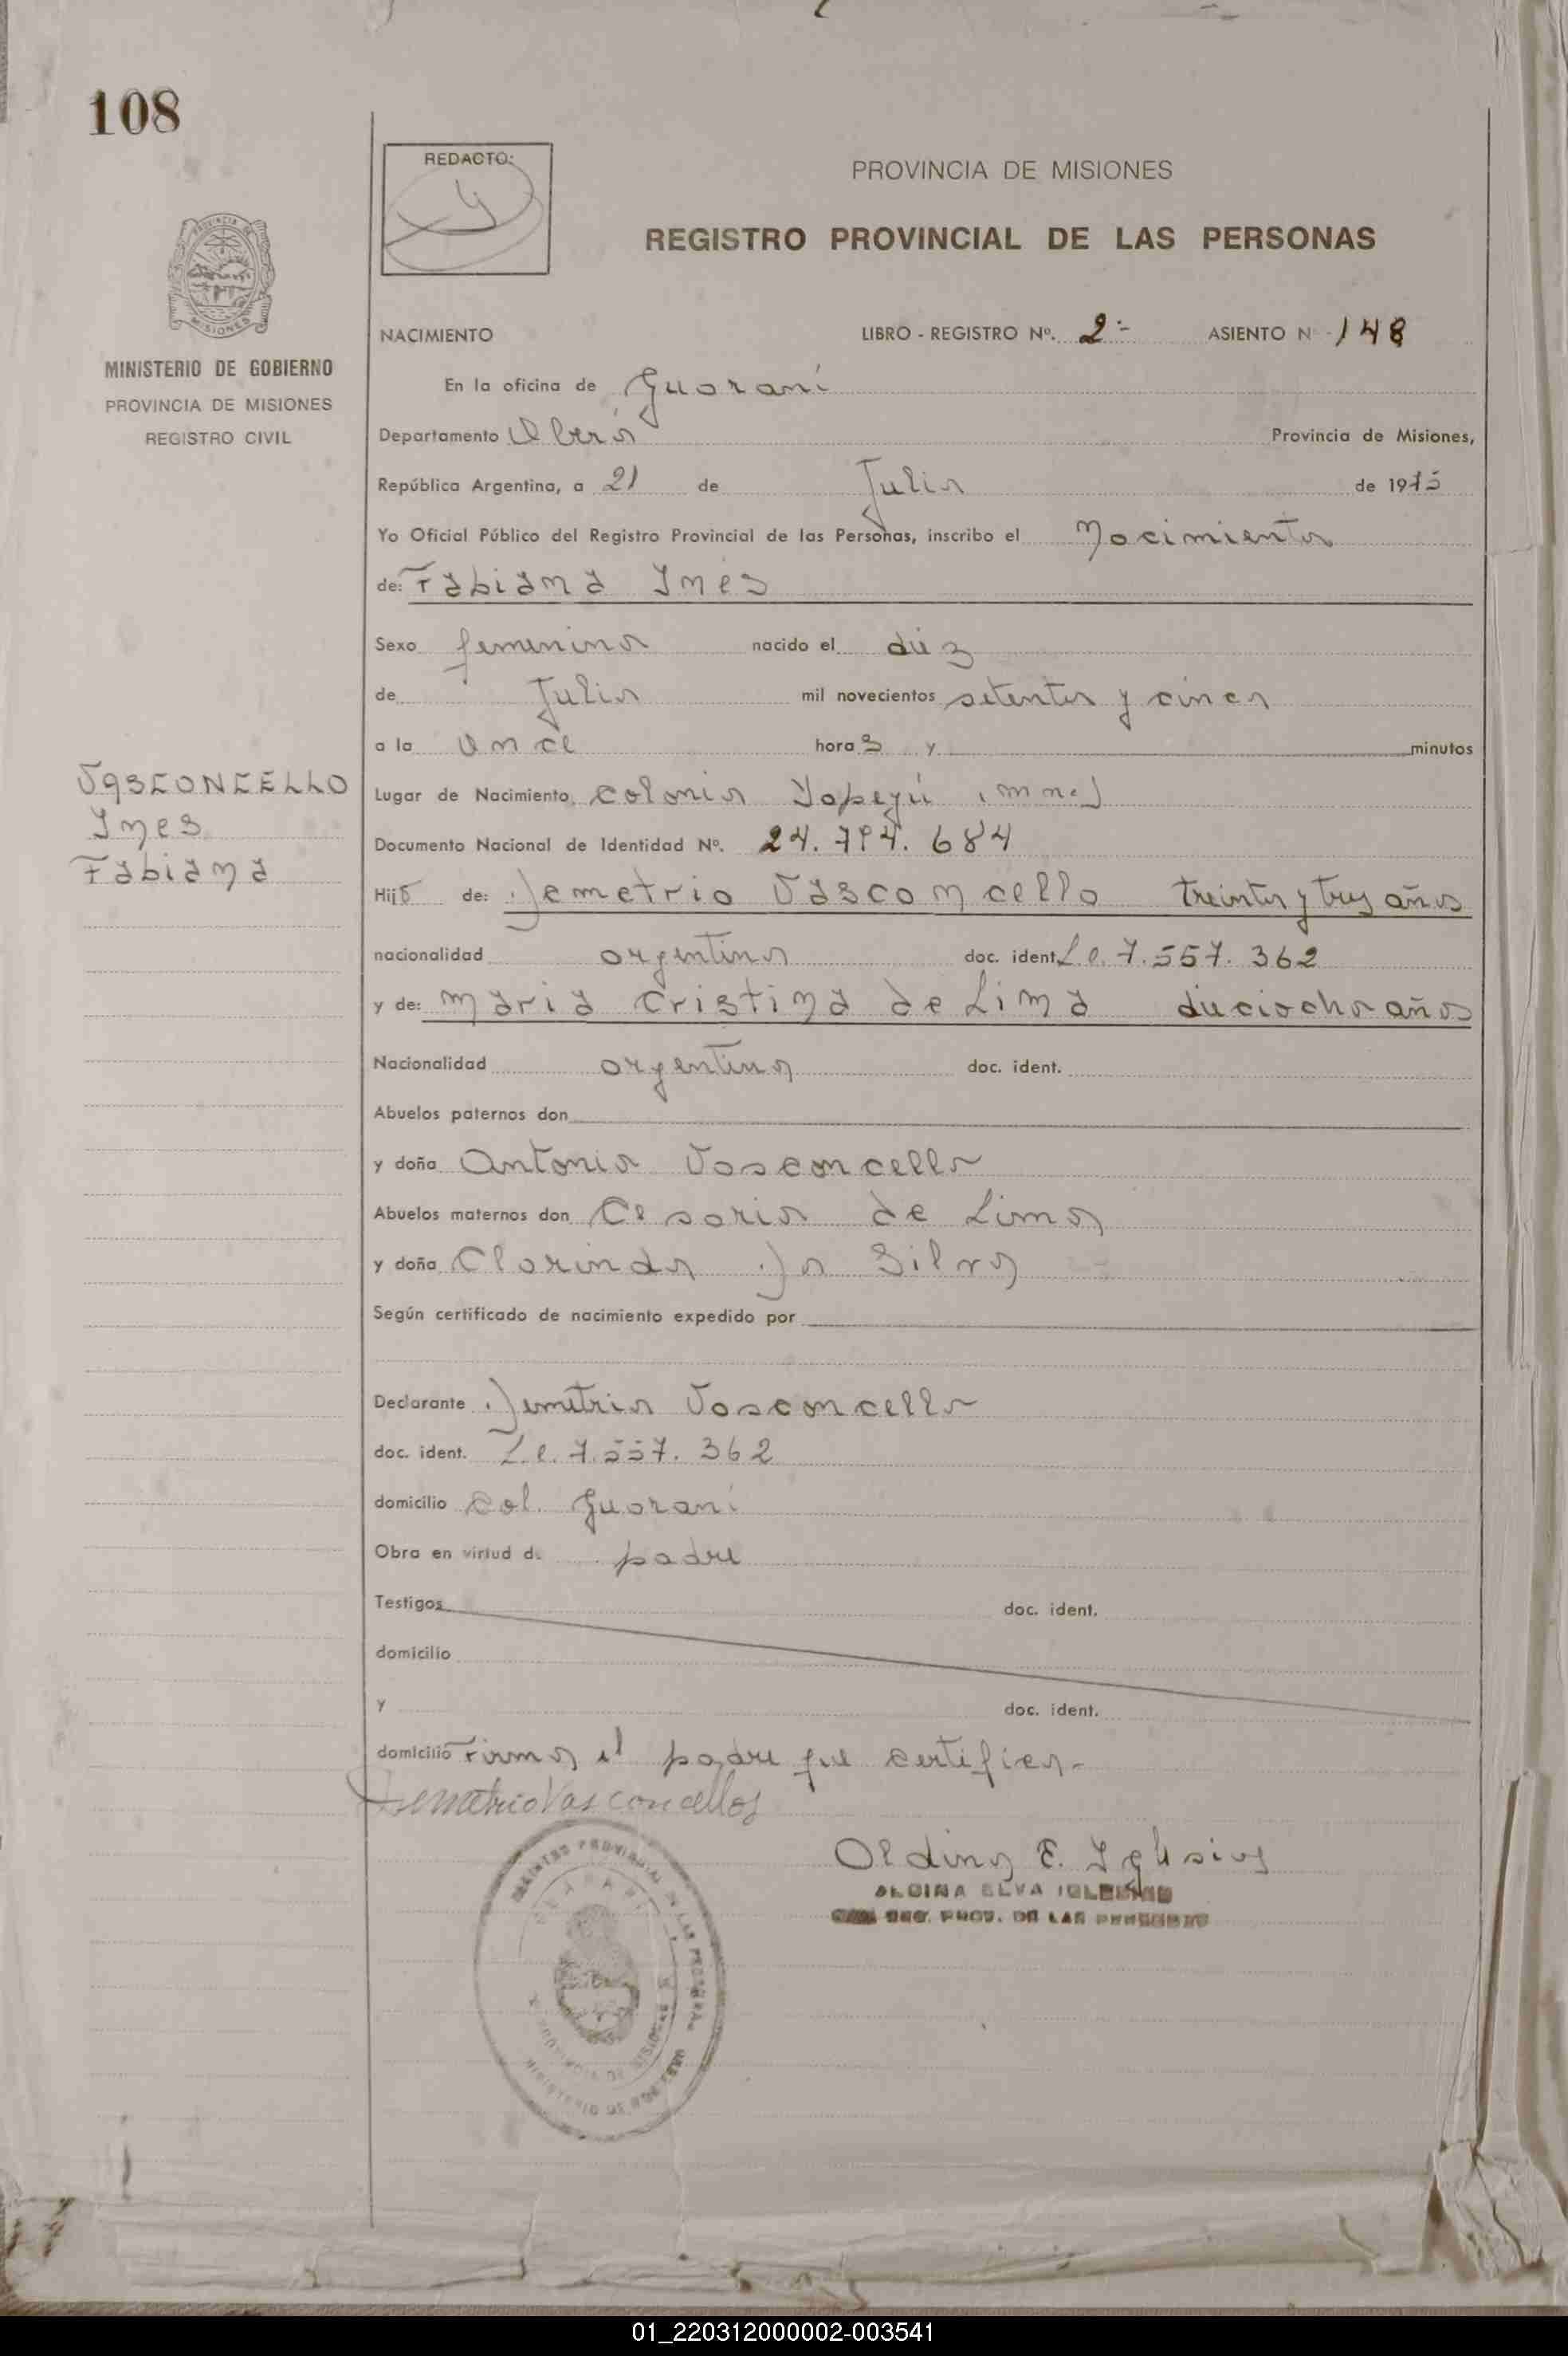 108
REDACTO:
PROVINCIA DE MISIONES
REGISTRO PROVINCIAL DE LAS PERSONAS
MINISTERIO DE GOBIERNO
PROVINCIA DE MISIONES
REGISTRO CIVIL
NACIMIENTO LIBRO - REGISTRO Nº. 2 - ASIENTO N 148
En la oficina de Guaraní
Departamento Oberá Provincia de Misiones,
República Argentina, a 21 de Julio de 1975
Yo Oficial Público del Registro Provincial de las Personas, inscribo el Nacimiento
de: Fabiana Ines
Sexo femenino nacido el diez
de Julio mil novecientos setenta y cinco
a la once horas y minutos
VASCONCELLO
Ines
Fabiana
Lugar de Nacimiento Colonia Yapeyú (mnes)
Documento Nacional de Identidad Nº. 24.794.684
Hija de: Demetrio Vasconcello treinta y tres años
nacionalidad argentino doc. ident. L.e. 7.557.362
y de: Maria Cristina de Lima dieciocho años
Nacionalidad argentina doc. ident.
Abuelos paternos don
y doña Antonia Vasconcello
Abuelos maternos don Cesario de Lima
y doña Clorinda Da Silva
Según certificado de nacimiento expedido por
Declarante Demetrio Vasconcello
doc. ident. L.e. 7.557.362
domicilio Col. Guaraní
Obra en virtud de padre
Testigos doc. ident.
domicilio
y doc. ident.
domicilio Firma el padre que certifica-
Demetrio Vasconcellos
Aldina E. Iglesias
ALDINA ELVA IGLESIAS
REG. PROV. DE LAS PERSONAS
REGISTRO PROVINCIAL DE LAS PERSONAS
GUARANI
PROVINCIA DE MISIONES
MINISTERIO DE GOBIERNO
01_220312000002-003541